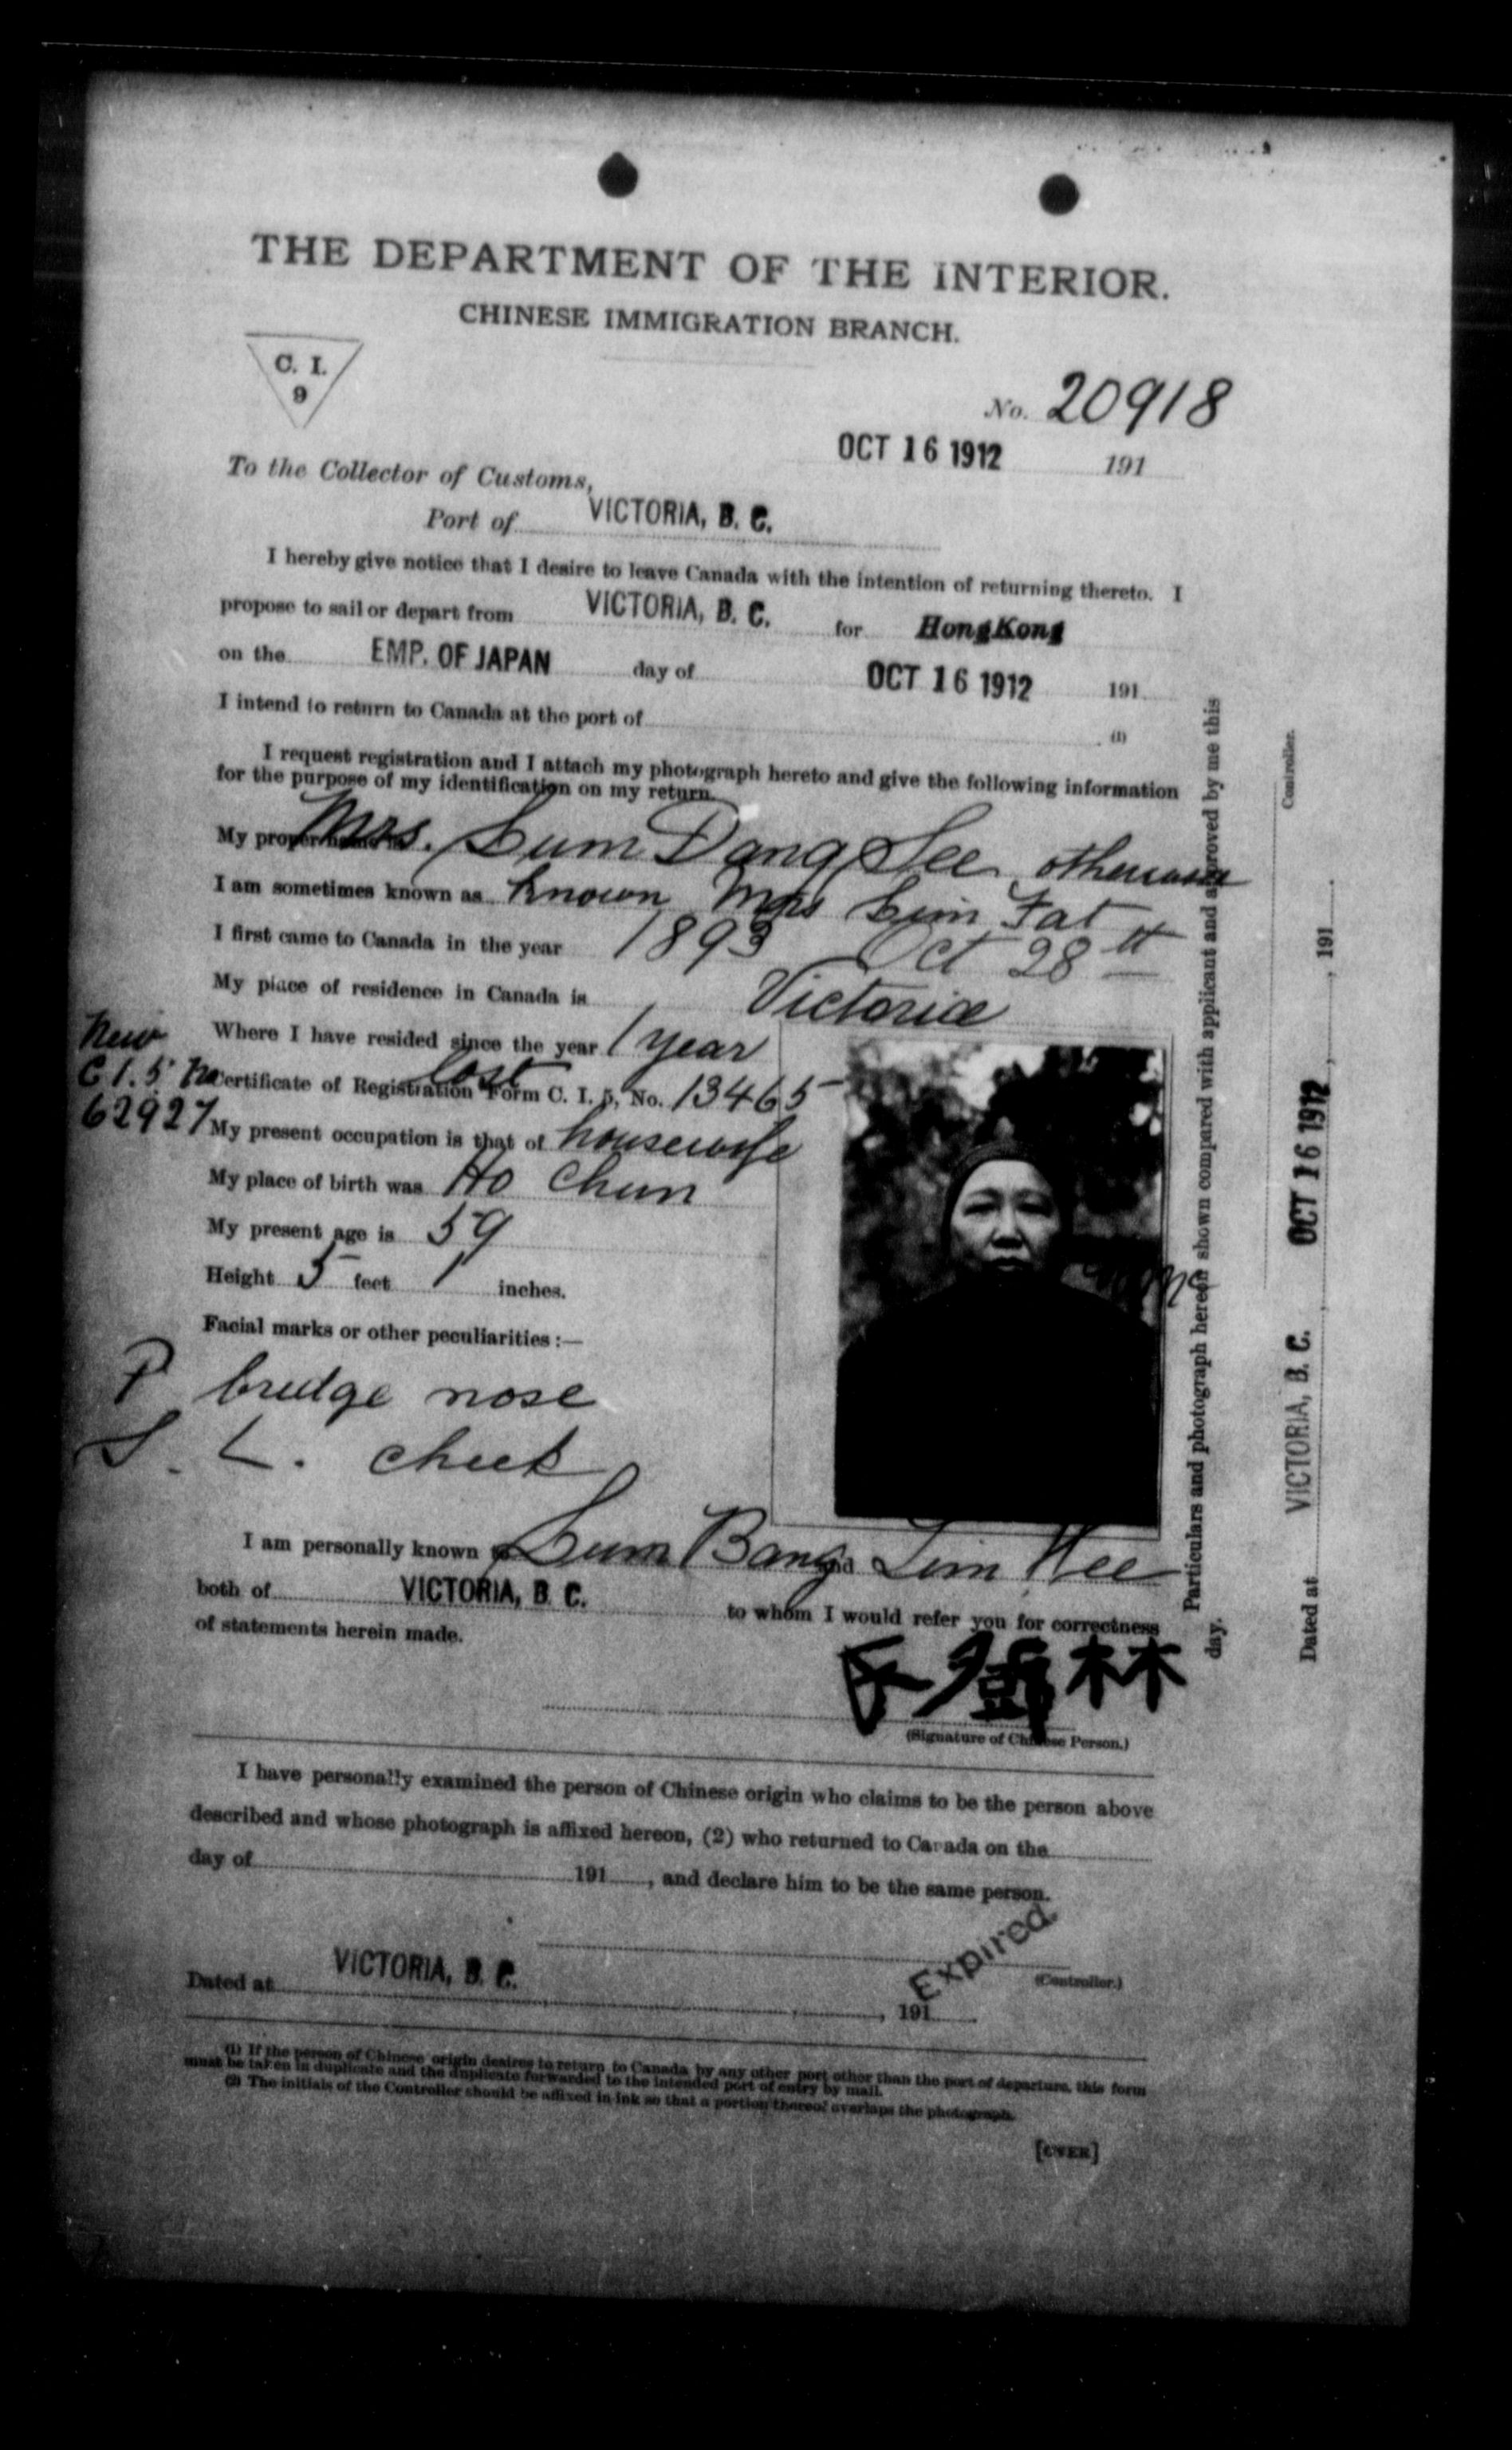 THE DEPARTMENT OF THE INTERIOR.
CHINESE IMMIGRATION BRANCH.
C. I.
9
No. 20918
OCT 16 1912 191
To the Collector of Customs,
Port of VICTORIA, B. C.
I hereby give notice that I desire to leave Canada with the intention of returning thereto. I
propose to sail or depart from VICTORIA, B. C. for HongKong
on the EMP. OF JAPAN day of OCT 16 1912 191
I intend to return to Canada at the port of (1)
I request registration and I attach my photograph hereto and give the following information
for the purpose of my identification on my return.
My proper name is Mrs. Lum Dang See otherwise
I am sometimes known as known Mrs Lim Fat
I first came to Canada in the year 1893 Oct 28th
My place of residence in Canada is Victoria
Where I have resided since the year 1 year
New
C I. 5 No
62927
lost
Certificate of Registration Form C. I. 5, No. 13465
My present occupation is that of housewife
My place of birth was Ho Chun
My present age is 59
Height 5 feet 1 inches.
Facial marks or other peculiarities :—
P bridge nose
S. L. cheek
I am personally known Lum Bang and Lim Kee
both of VICTORIA, B. C. to whom I would refer you for correctness
of statements herein made.
林
(Signature of Chinese Person.)
I have personally examined the person of Chinese origin who claims to be the person above
described and whose photograph is affixed hereon, (2) who returned to Canada on the
day of 191 , and declare him to be the same person.
Expired
(Controller.)
Dated at VICTORIA, B. C. , 191 .
(1) If the person of Chinese origin desires to return to Canada by any other port other than the port of departure, this form
must be taken in duplicate and the duplicate forwarded to the intended port of entry by mail.
(2) The initials of the Controller should be affixed in ink so that a portion thereof overlaps the photograph.
[OVER]
Particulars and photograph hereon shown compared with applicant and approved by me this
day.
Controller.
Dated at VICTORIA, B. C. OCT 16 1912 , 191